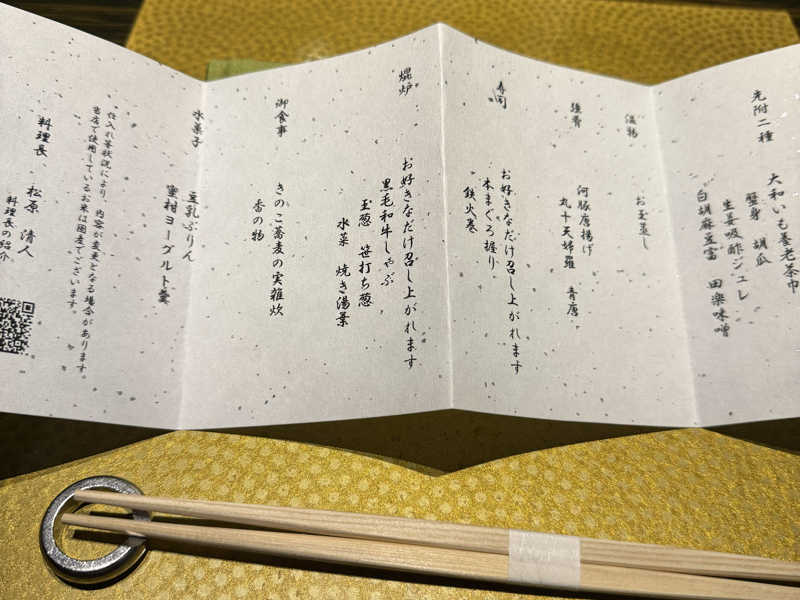 先附二種
大和いも養老茶巾
蟹身 胡瓜
生姜吸酢ジュレ
白胡麻豆富 田楽味噌
温物
お玉蒸し
強肴
河豚唐揚げ
丸十天婦羅 青唐
寿司
お好きなだけ召し上がれます
本まぐろ握り
鉄火巻
焜炉
お好きなだけ召し上がれます
黒毛和牛しゃぶ
玉葱 笹打ち葱
水菜 焼き湯葉
御食事
きのこ蕎麦の実雑炊
香の物
水菓子
豆乳ぷりん
蜜村ヨーグルト羹
仕入れ等状況により、内容が変更となる場合があります。
当店で使用しているお米は国産でございます。
料理長 松原 清人
料理長の紹介